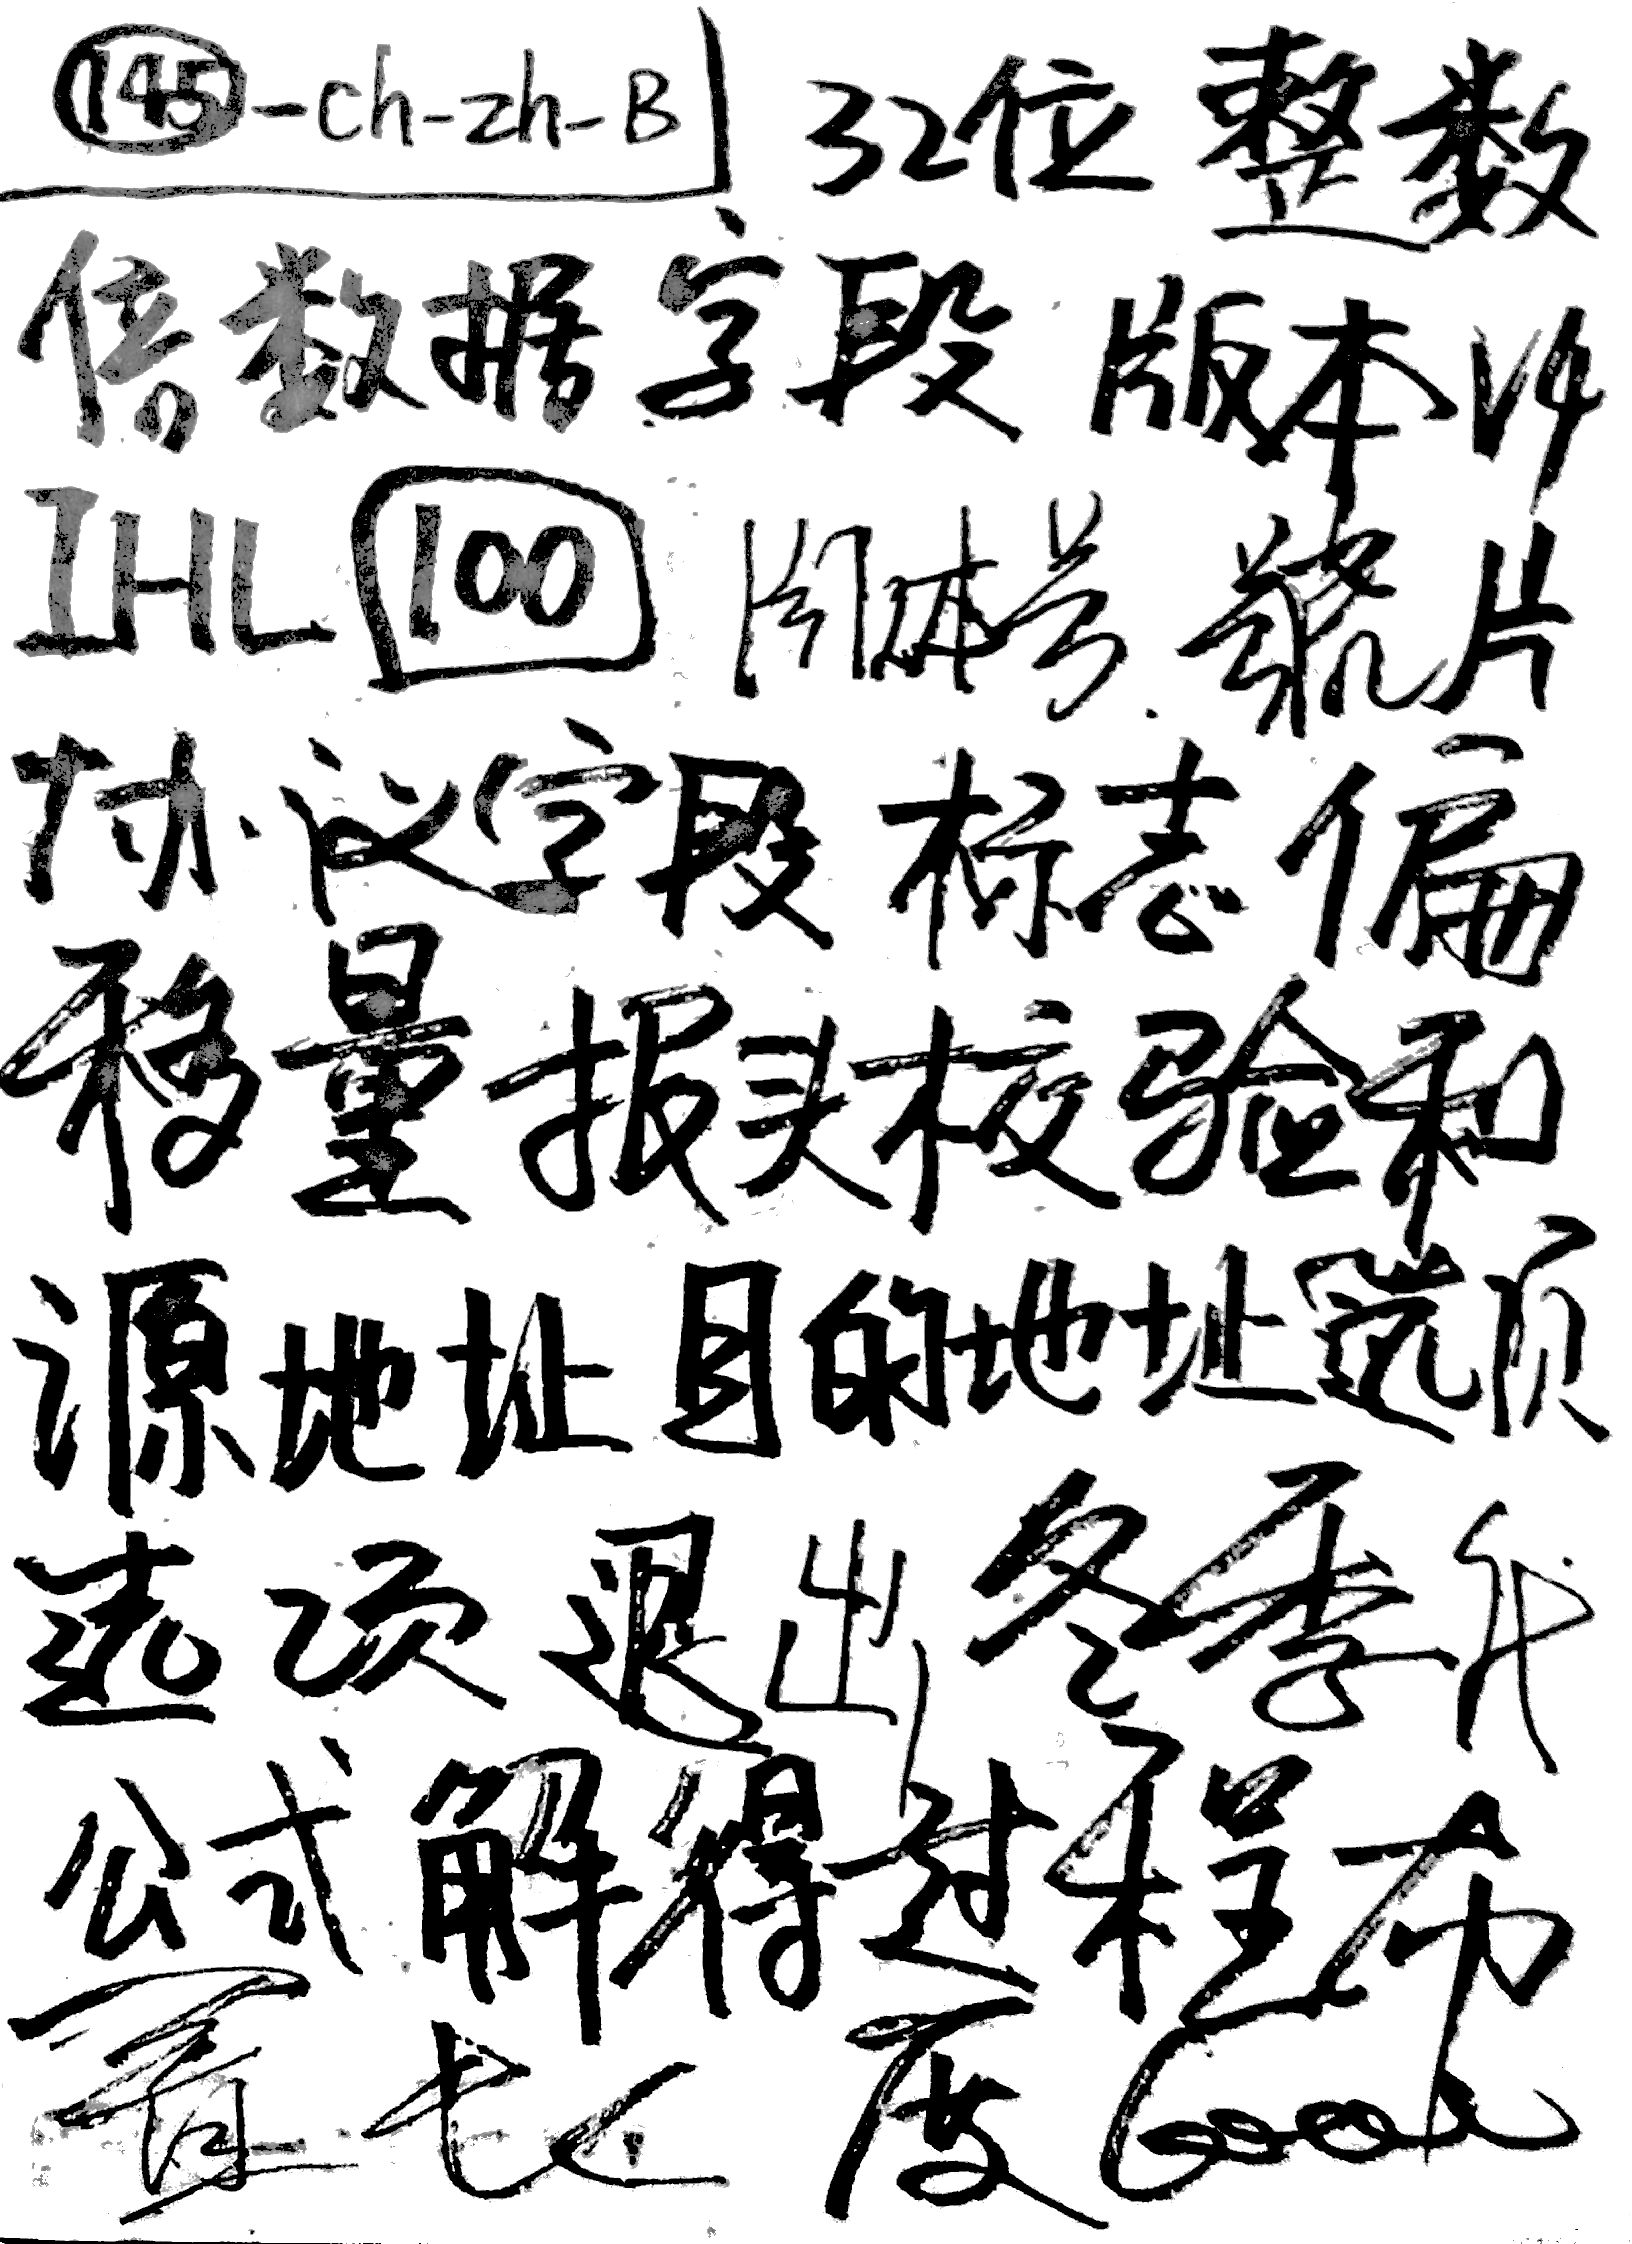 145-ch-zh-B 32位 整数
倍数据字段 版本 V4
IHL 100 片
协议字段 标志 偏
移量 报头校验和
源地址 目的地址 选项
选项 退出, 冬季代
公式 解得过程 布
置 长 度 Good